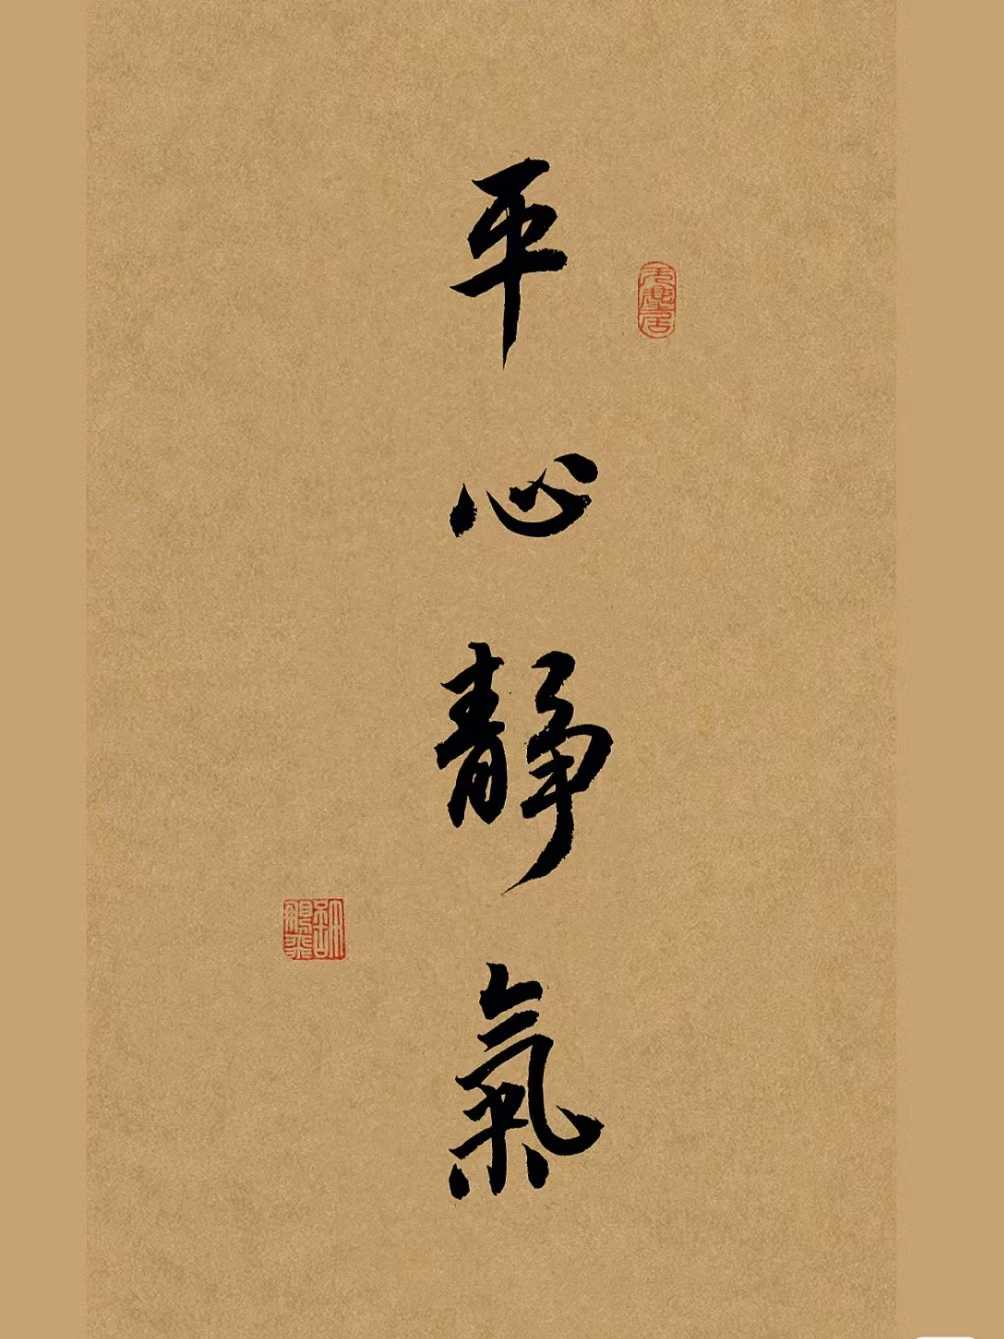 平心靜氣